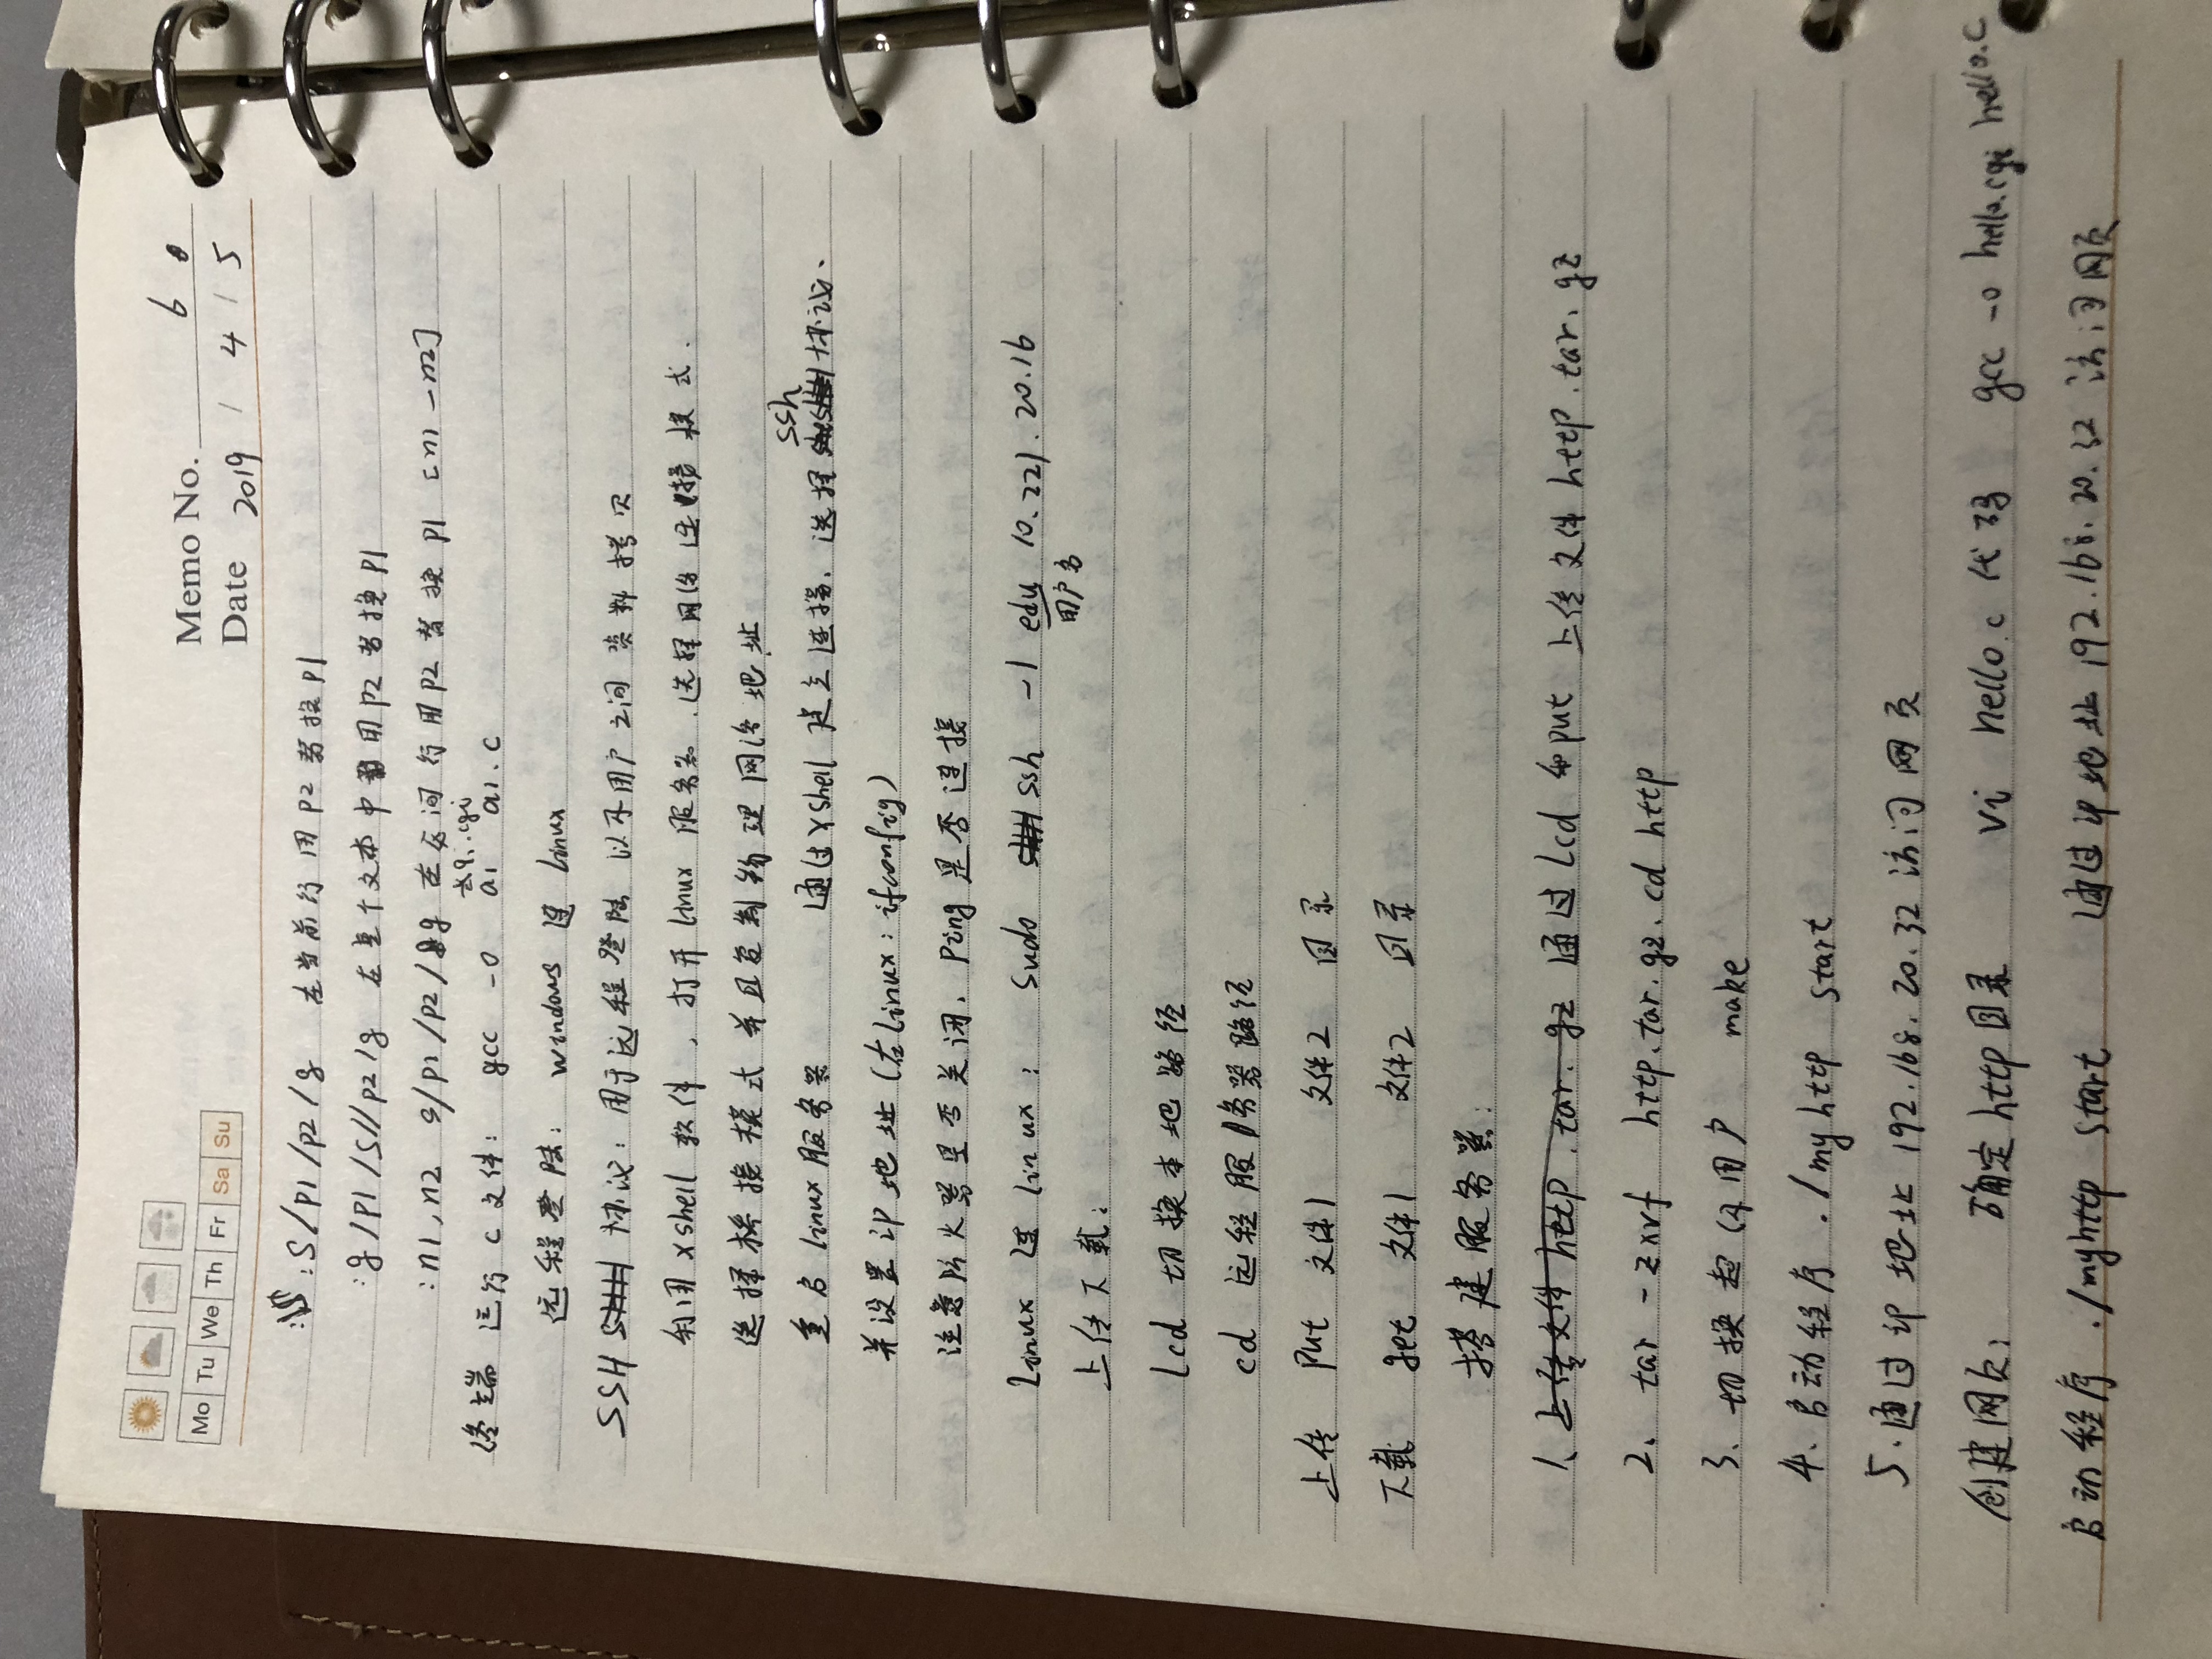 Memo No. 6
Mo Tu We Th Fr Sa Su
Date 2019 / 4 / 5
:s/p1/p2/g 在当前行用p2替换p1
:g/p1/s//p2/g 在整个文本中用p2替换p1
:n1,n2 s/p1/p2/g 在区间行用p2替换p1 [n1-n2]
a9.cgi
终端运行c文件: gcc -o a1 a1.c
远程登陆: windows 连 linux
SSH 协议: 用于远程登陆以及用户之间资料拷贝
利用xshell软件, 打开linux服务器. 选择网络连接模式.
选择桥接模式并且复制物理网络地址
ssh
重启linux服务器 通过xshell建立连接. 选择协议.
并设置ip地址(在linux: ifconfig)
注意防火墙是否关闭. Ping是否连接
Linux 连 linux: sudo ssh -l edu 10.221.20.16
用户名
上传下载:
lcd 切换本地路径
cd 远程服务器路径
上传 put 文件1 文件2 目录
下载 get 文件1 文件2 目录
搭建服务器:
1、上传文件http.tar.gz 通过lcd和put 上传文件http.tar.gz
2、tar -zxvf http.tar.gz. cd http
3、切换超级用户 make
4、启动程序 ./myhttp start
5. 通过ip地址192.168.20.32访问网页
创建网页: 确定http目录 vi hello.c 代码 gcc -o hello.cgi hello.c
启动程序 ./myhttp start 通过ip地址192.168.20.32访问网页